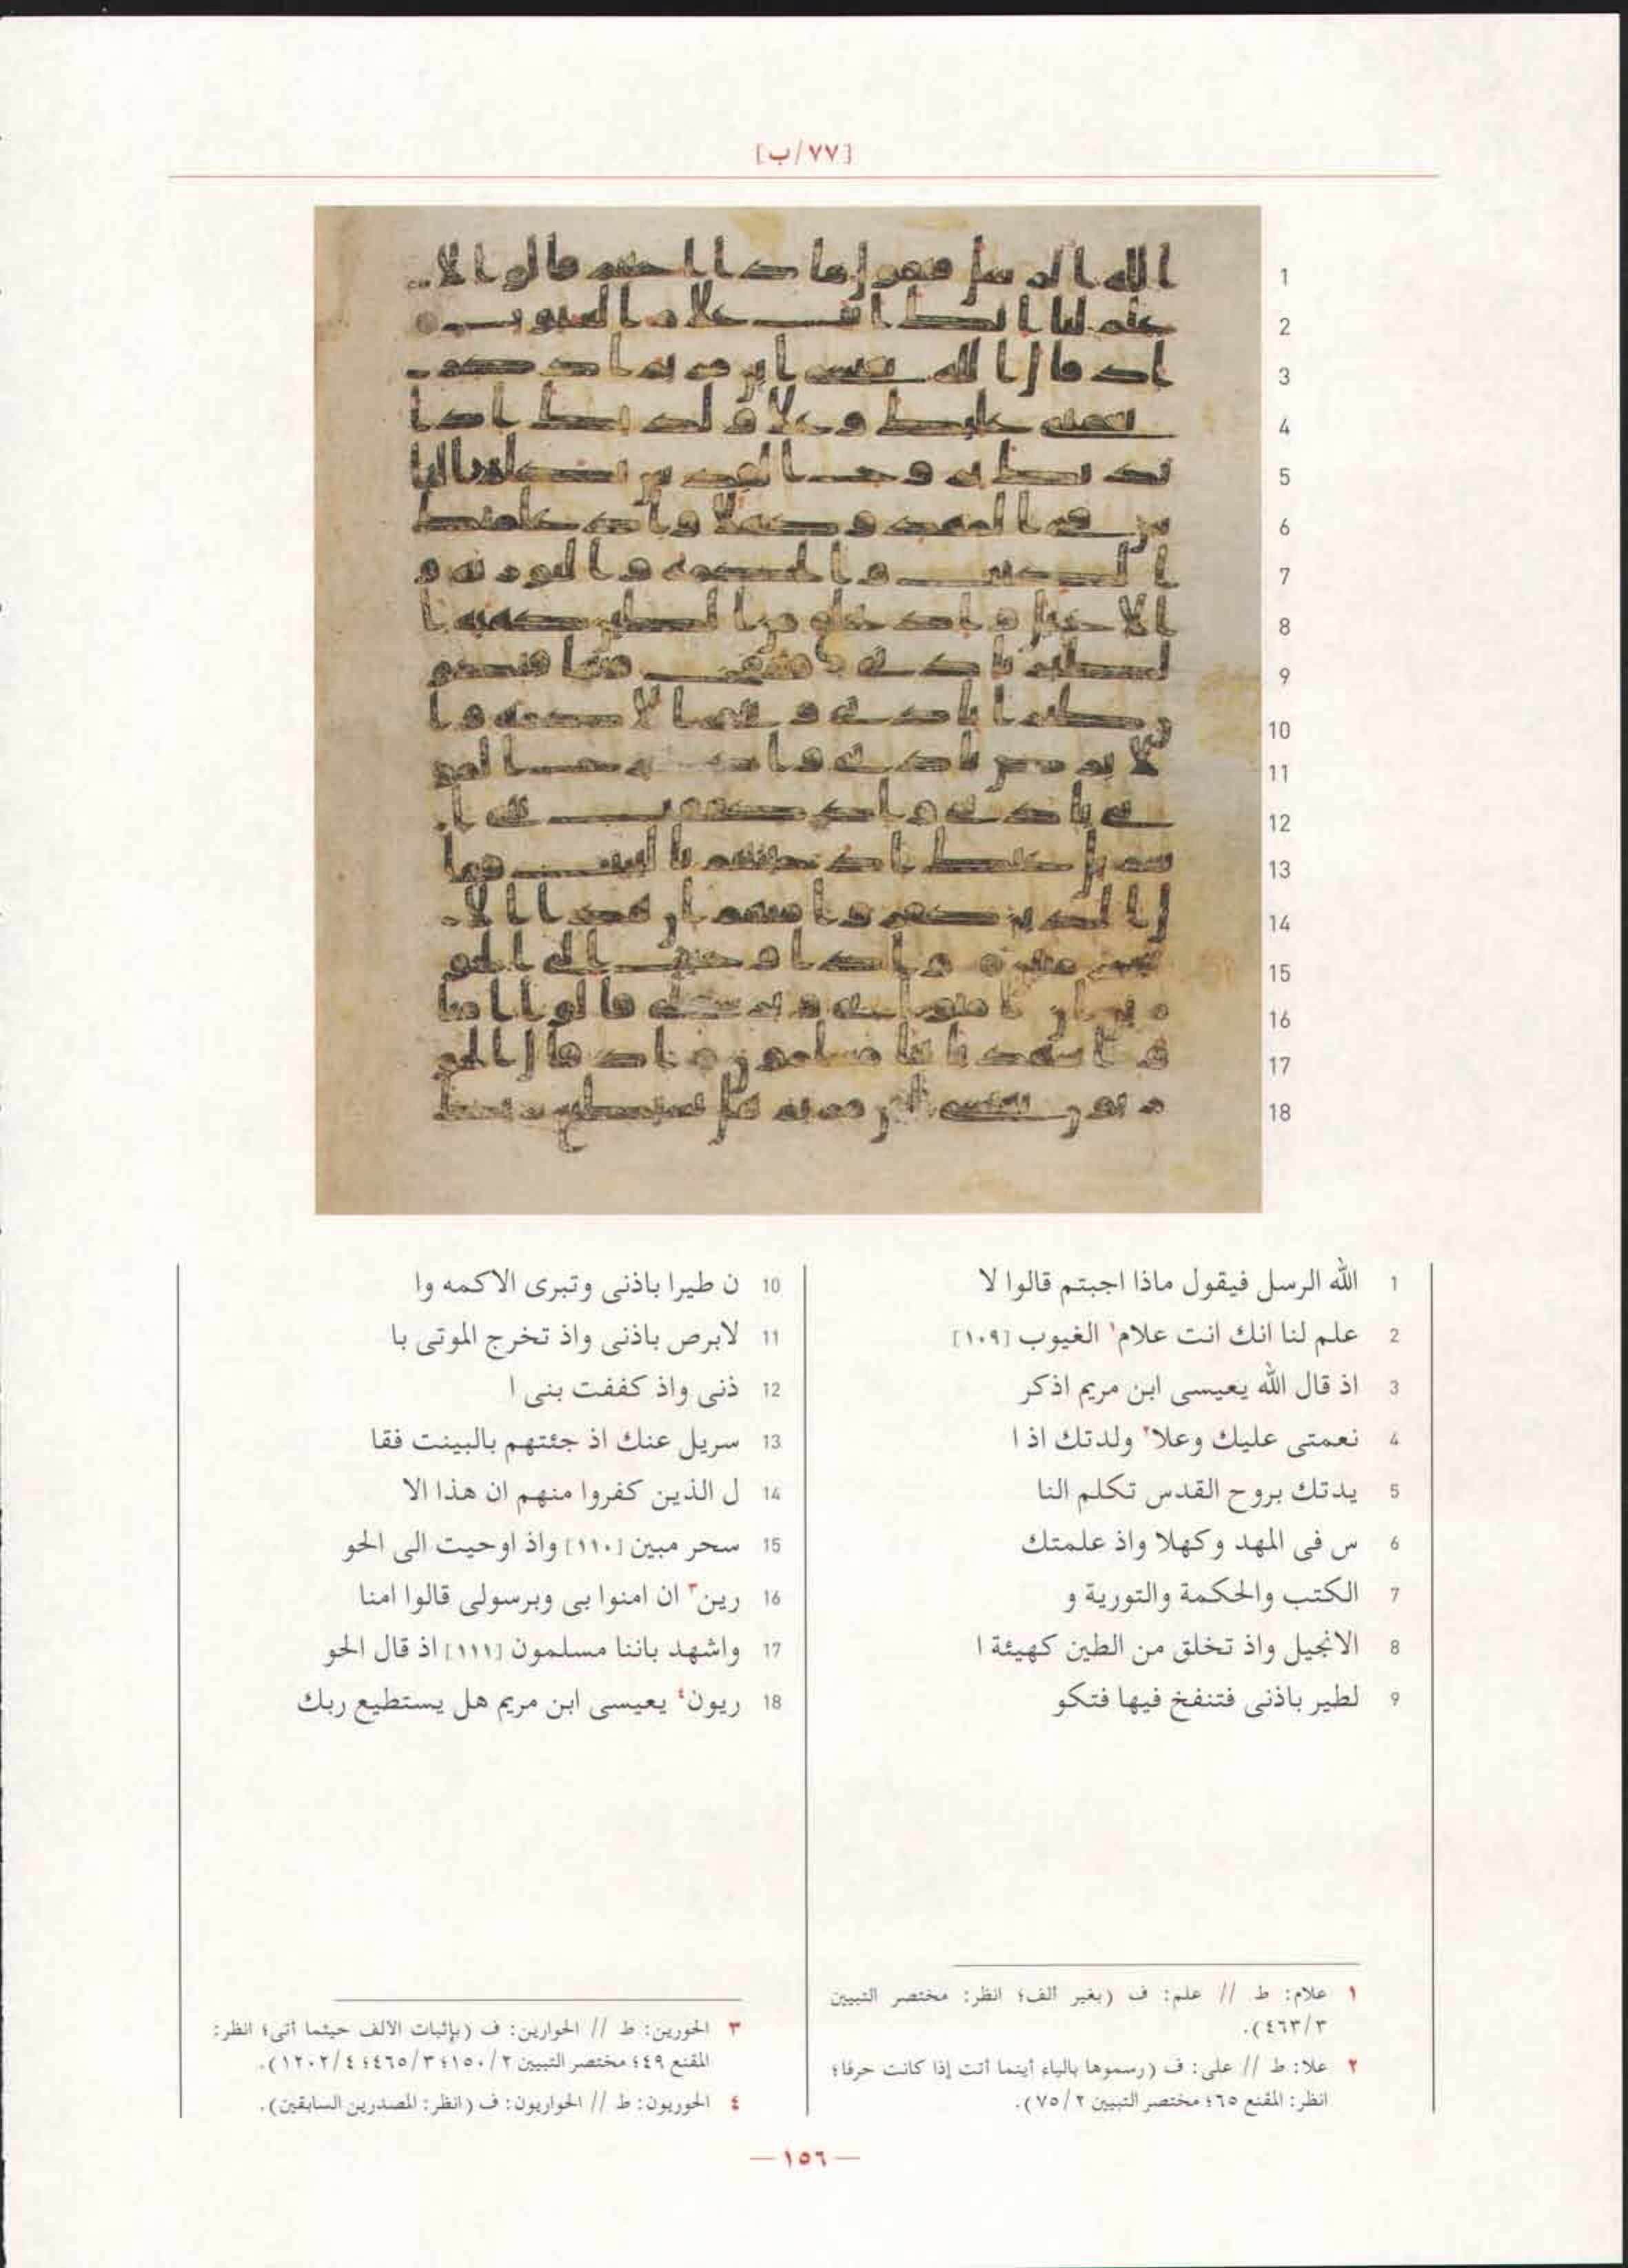 [٧٧/ب]
1 الله الرسل فيقول ماذا اجبتم قالوا لا
2 علم لنا انك انت علام١ الغيوب [١٠٩]
3 اذ قال الله يعيسى ابن مريم اذكر
4 نعمتى عليك وعلا٢ ولدتك اذ ا
5 يدتك بروح القدس تكلم النا
6 س فى المهد وكهلا واذ علمتك
7 الكتب والحكمة والتورية و
8 الانجيل واذ تخلق من الطين كهيئة ا
9 لطير باذنى فتنفخ فيها فتكو
10 ن طيرا باذنى وتبرى الاكمه وا
11 لابرص باذنى واذ تخرج الموتى با
12 ذنى واذ كففت بنى ا
13 سريل عنك اذ جئتهم بالبينت فقا
14 ل الذين كفروا منهم ان هذا الا
15 سحر مبين [١١٠] واذ اوحيت الى الحو
16 رين٣ ان امنوا بى وبرسولى قالوا امنا
17 واشهد باننا مسلمون [١١١] اذ قال الحو
18 ريون٤ يعيسى ابن مريم هل يستطيع ربك
١ علام: ط // علم: ف (بغير ألف؛ انظر: مختصر التبيين
٤٦٣/٣).
٢ علا: ط // على: ف (رسموها بالياء أينما أتت إذا كانت حرفا؛
انظر: المقنع ٦٥؛ مختصر التبيين ٧٥/٢).
٣ الحورين: ط // الحوارين: ف (بإثبات الألف حيثما أتى؛ انظر:
المقنع ٤٤٩؛ مختصر التبيين ١٥٠/٢؛ ٤٦٥/٣؛ ١٢٠٢/٤).
٤ الحوريون: ط // الحواريون: ف (انظر: المصدرين السابقين).
— ١٥٦ —